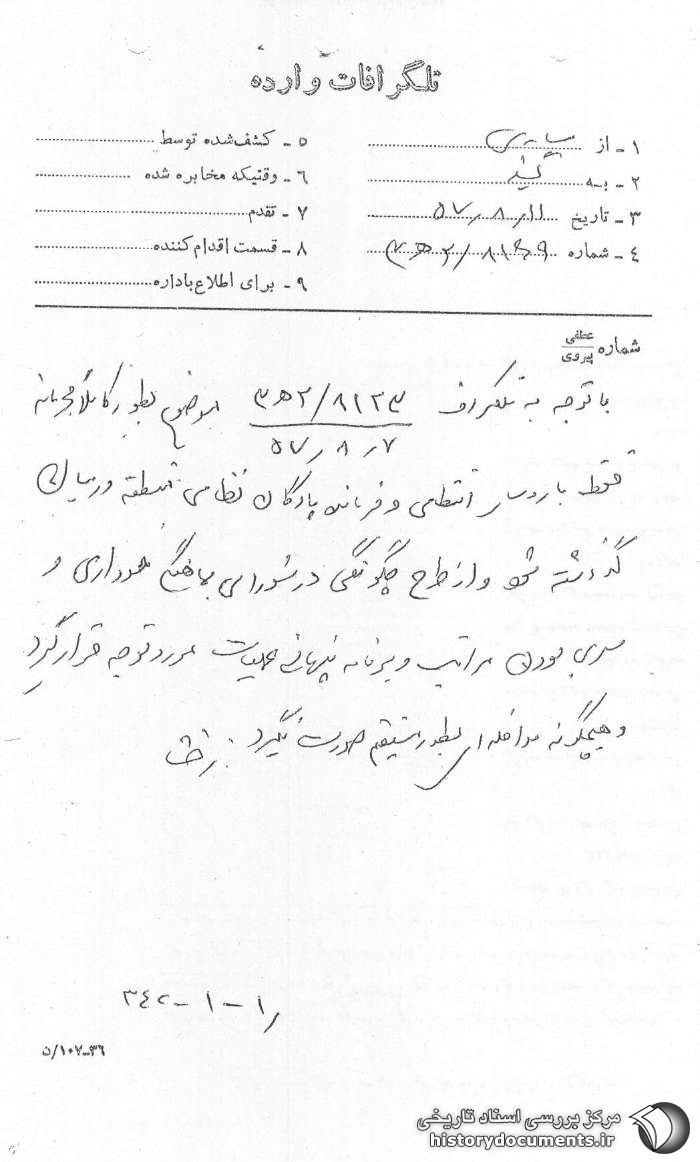 تلگرافات وارده
۱ - از
۲ - به
۳ - تاریخ ۵۷/۸/۱۱
۴ - شماره ۳ﻫ۲/۸۱۴۹
۵ - کشف شده توسط
۶ - وقتیکه مخابره شده
۷ - تقدم
۸ - قسمت اقدام کننده
۹ - برای اطلاع باداره
شماره عطفی پیروی
با توجه به تلگراف ۳ﻫ۲/۸۱۲۳ ۵۷/۸/۷ موضوع بطور کاملا محرمانه
فقط با روسای انتظامی و فرمانده پادگان نظامی منطقه در میان
گذاشته شود و از طرح چگونگی در شورای هماهنگی خودداری و
سری بودن مراتب و برنامه پنهانی عملیات مورد توجه قرار گیرد
و هیچگونه مداخله ای بطور مستقیم صورت نگیرد.
۳۴۲-۱-۱/
۳۶-۱۰۷/ن
مرکز بررسی اسناد تاریخی
historydocuments.ir